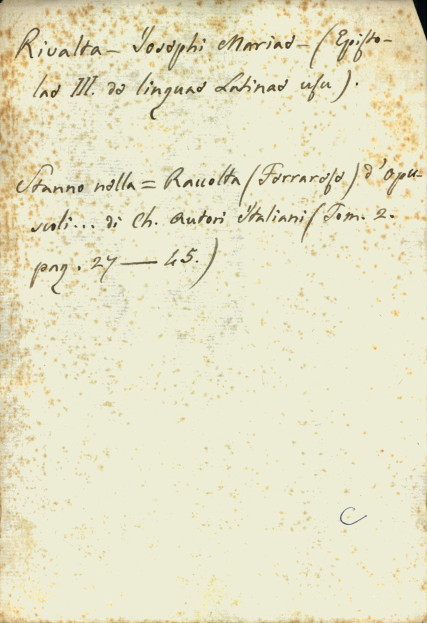 Rivalta - Josephi Mariae - (Episto-
lae III. de linguae Latinae usu).
Stanno nella = Raccolta (Ferrarese) d'opu-
scoli... di Ch. Autori Italiani (Tom. 2.
pag. 27 — 45.)
C